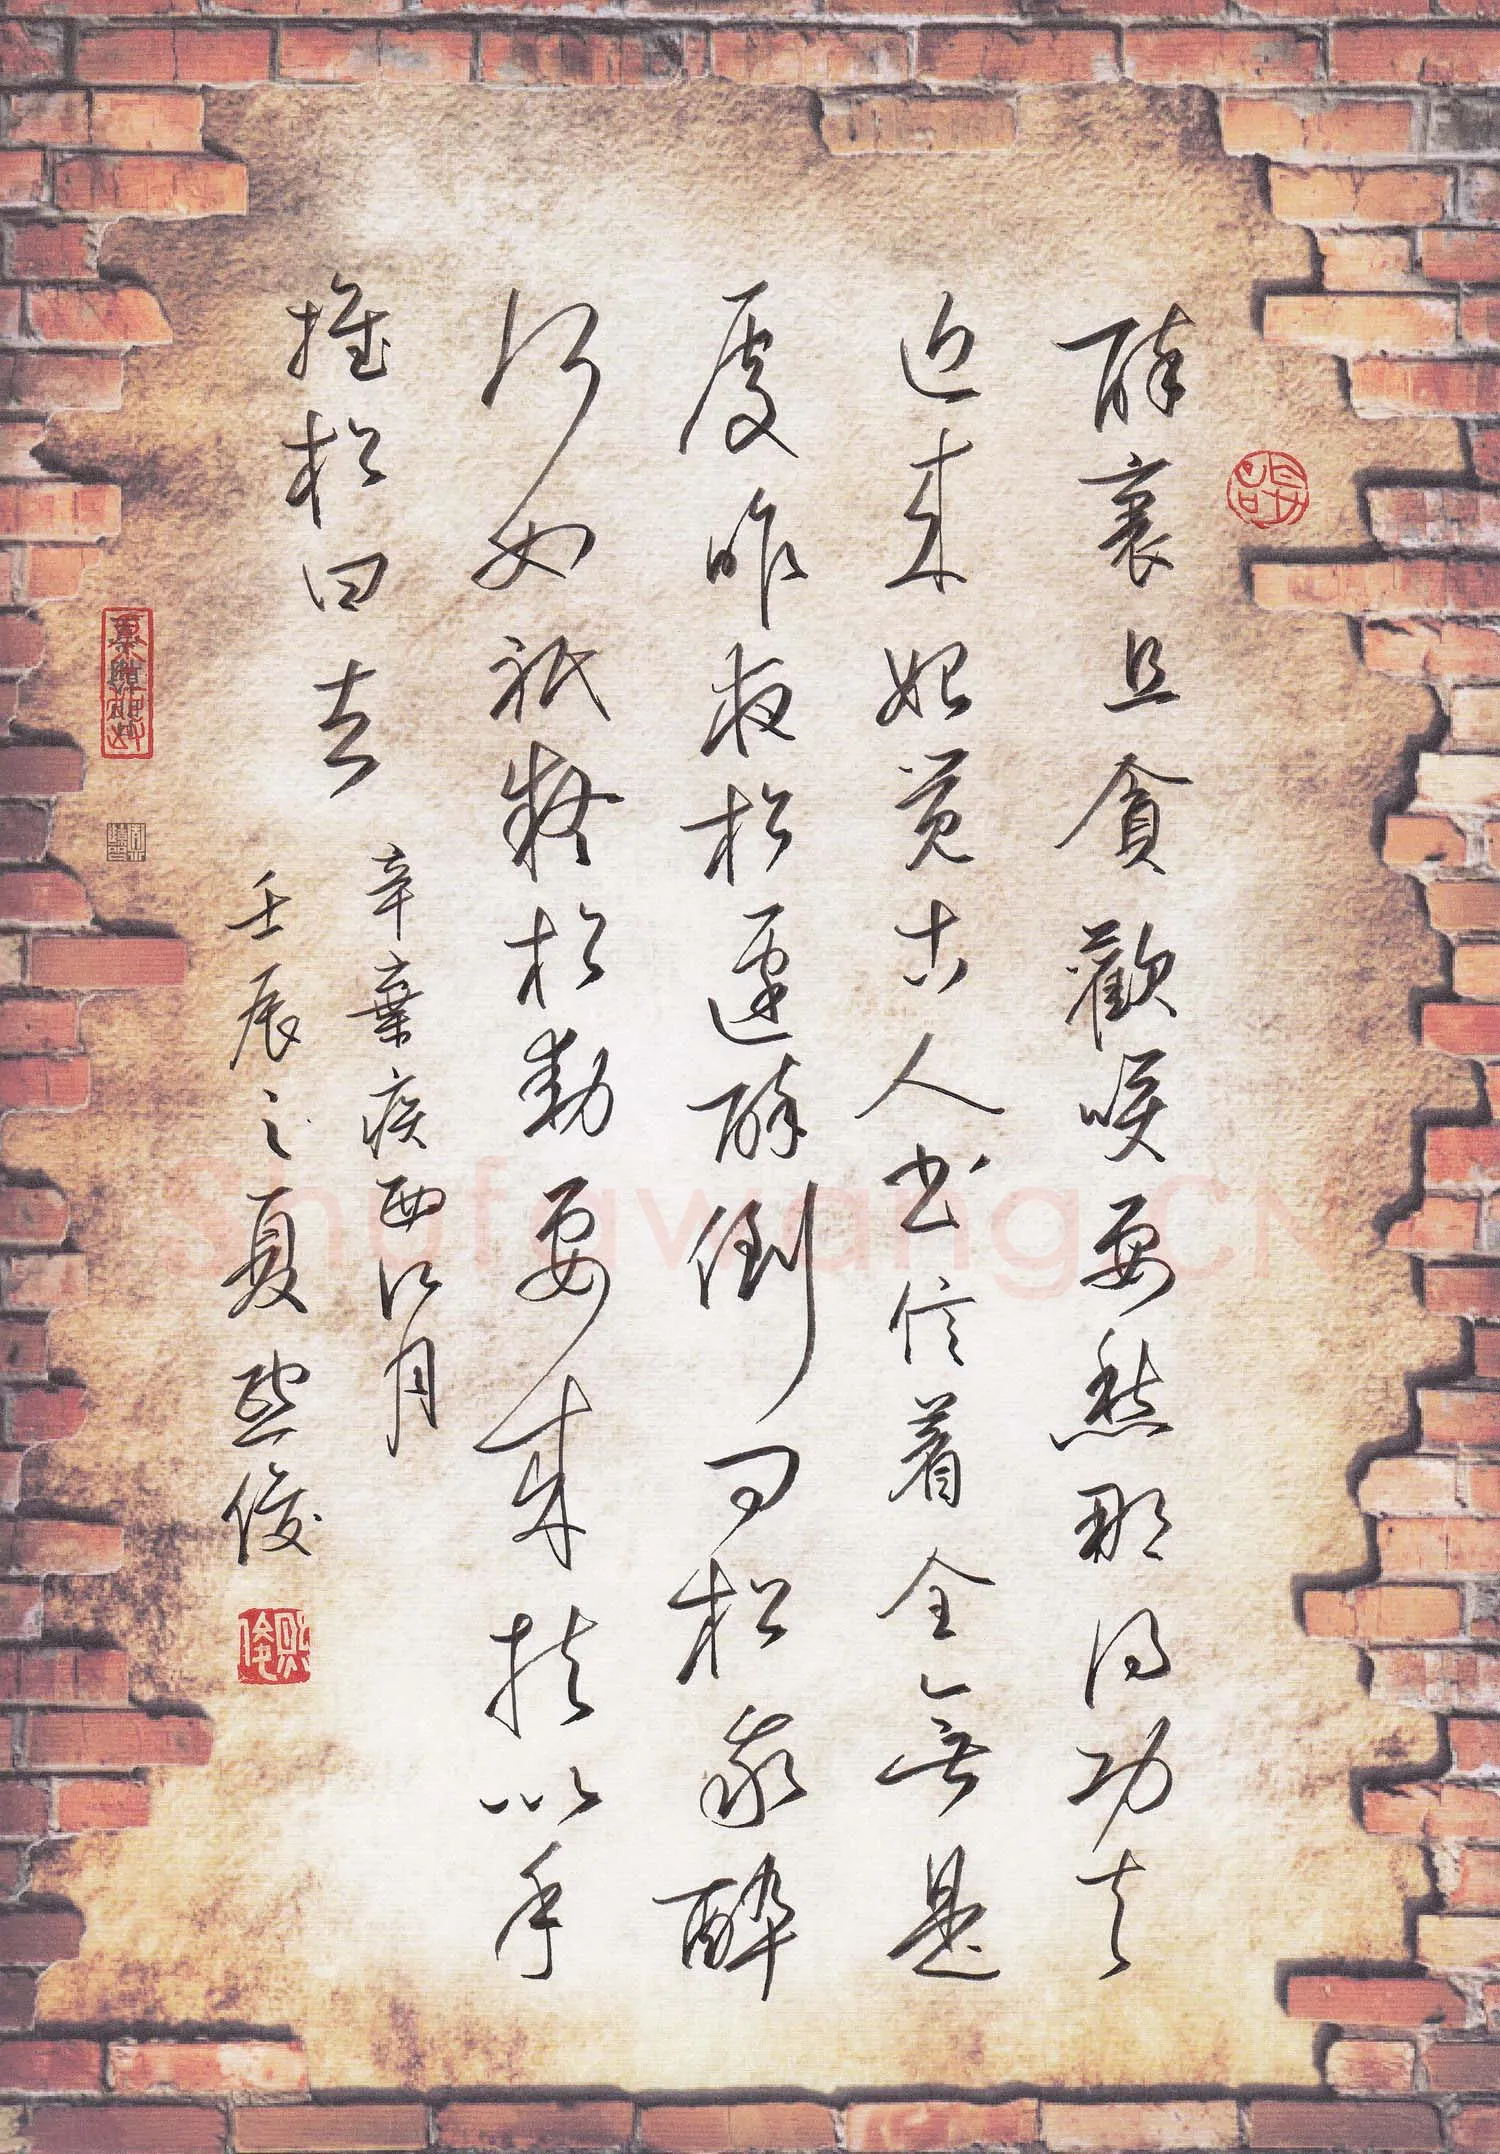 醉裏且貪歡咲要愁那得功夫
近来始覺古人書信着全無是
處昨夜松邊醉倒問松我醉
何如祇疑松動要来扶以手
推松曰去
辛棄疾西江月
壬辰之夏熙俊
熙俊
Shufawang.CN